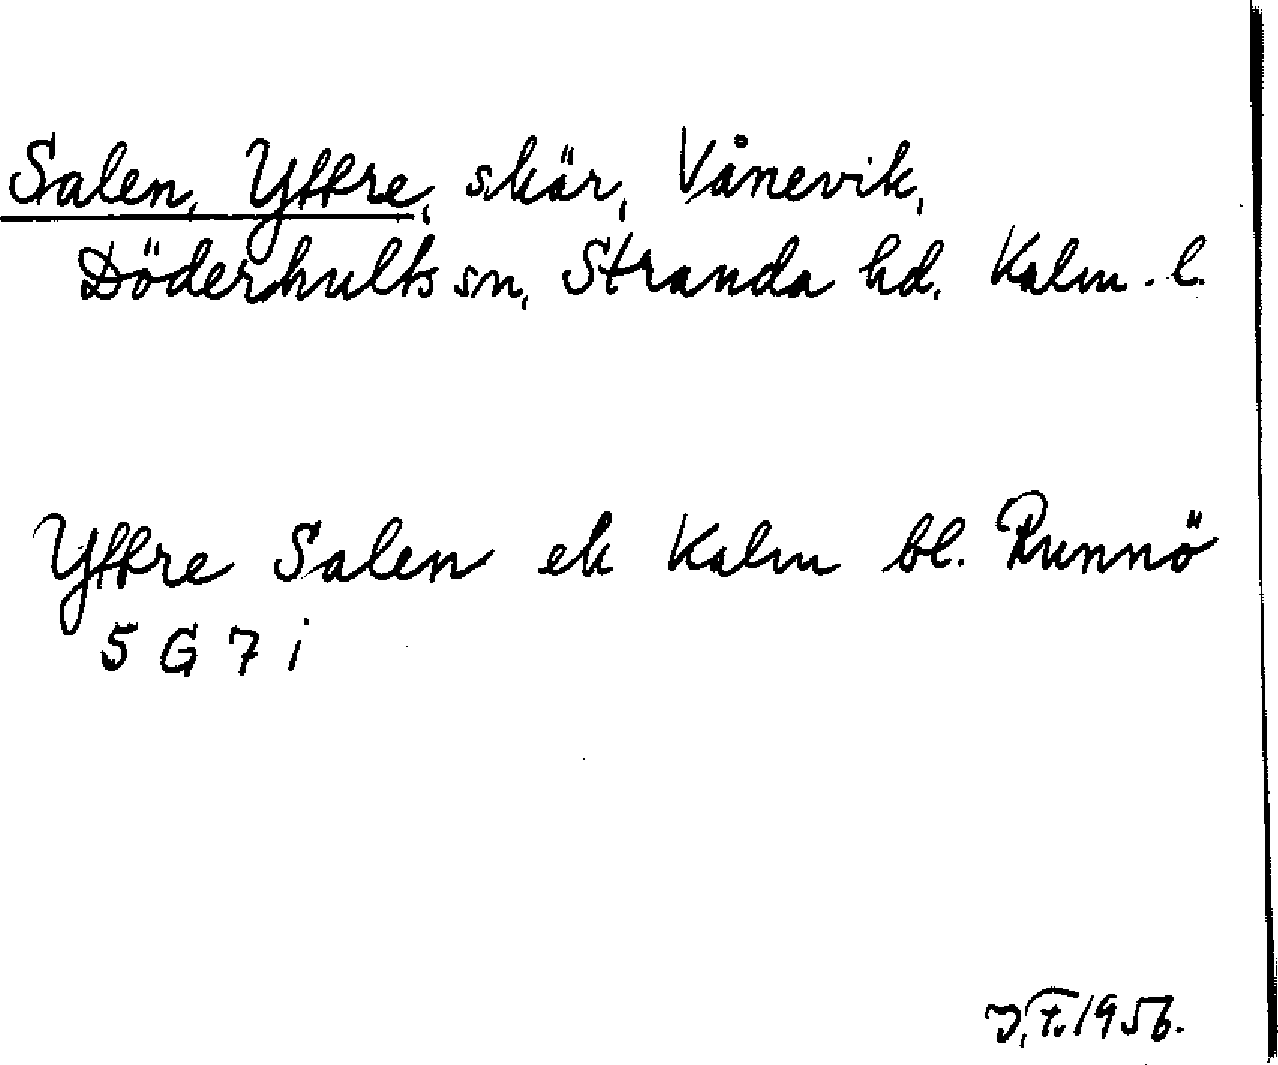 Salen, Yttre, skär, Vånevik,
Döderhults sn, Stranda hd. Kalm. l.
Yttre Salen ek Kalm bl. Runnö
5 G 7 i
1956.